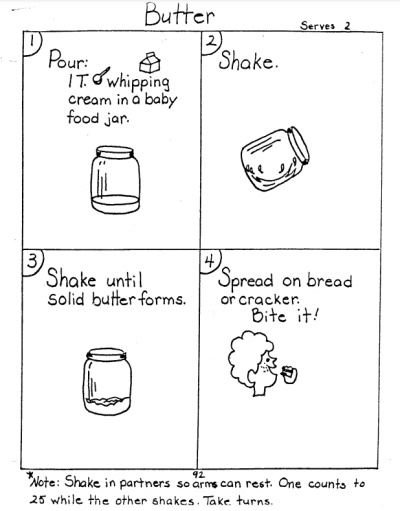 Butter
Serves 2
1
Pour:
1 T. whipping
cream in a baby
food jar.
2
Shake.
3
Shake until
solid butter forms.
4
Spread on bread
or cracker.
Bite it!
92
*Note: Shake in partners so arms can rest. One counts to
25 while the other shakes. Take turns.